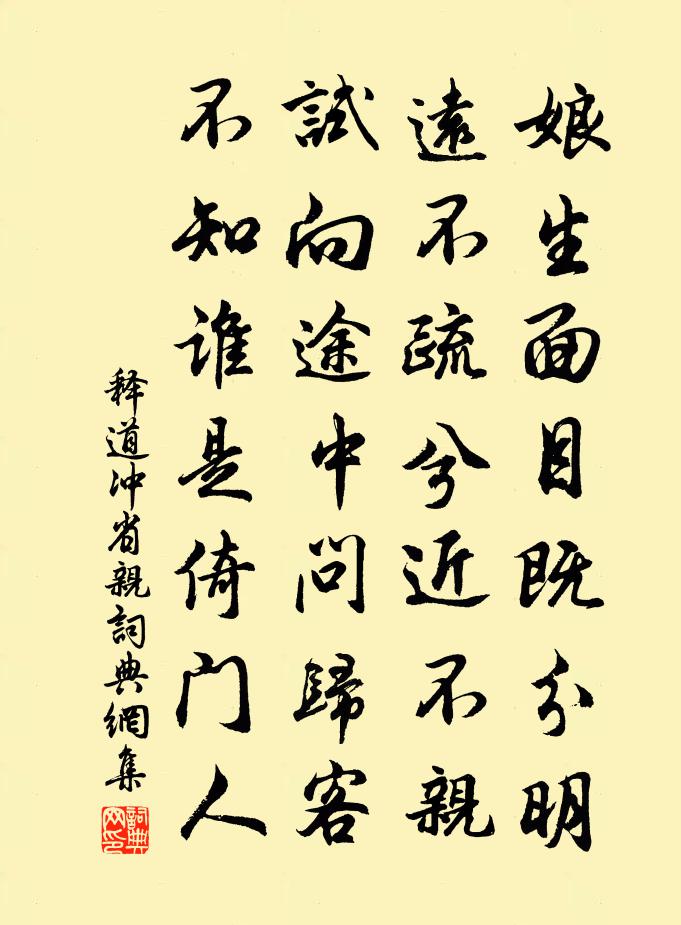 娘生面目既分明
遠不疏兮近不親
試向途中問歸客
不知誰是倚門人
释道冲省親詞典網集
詞典網印